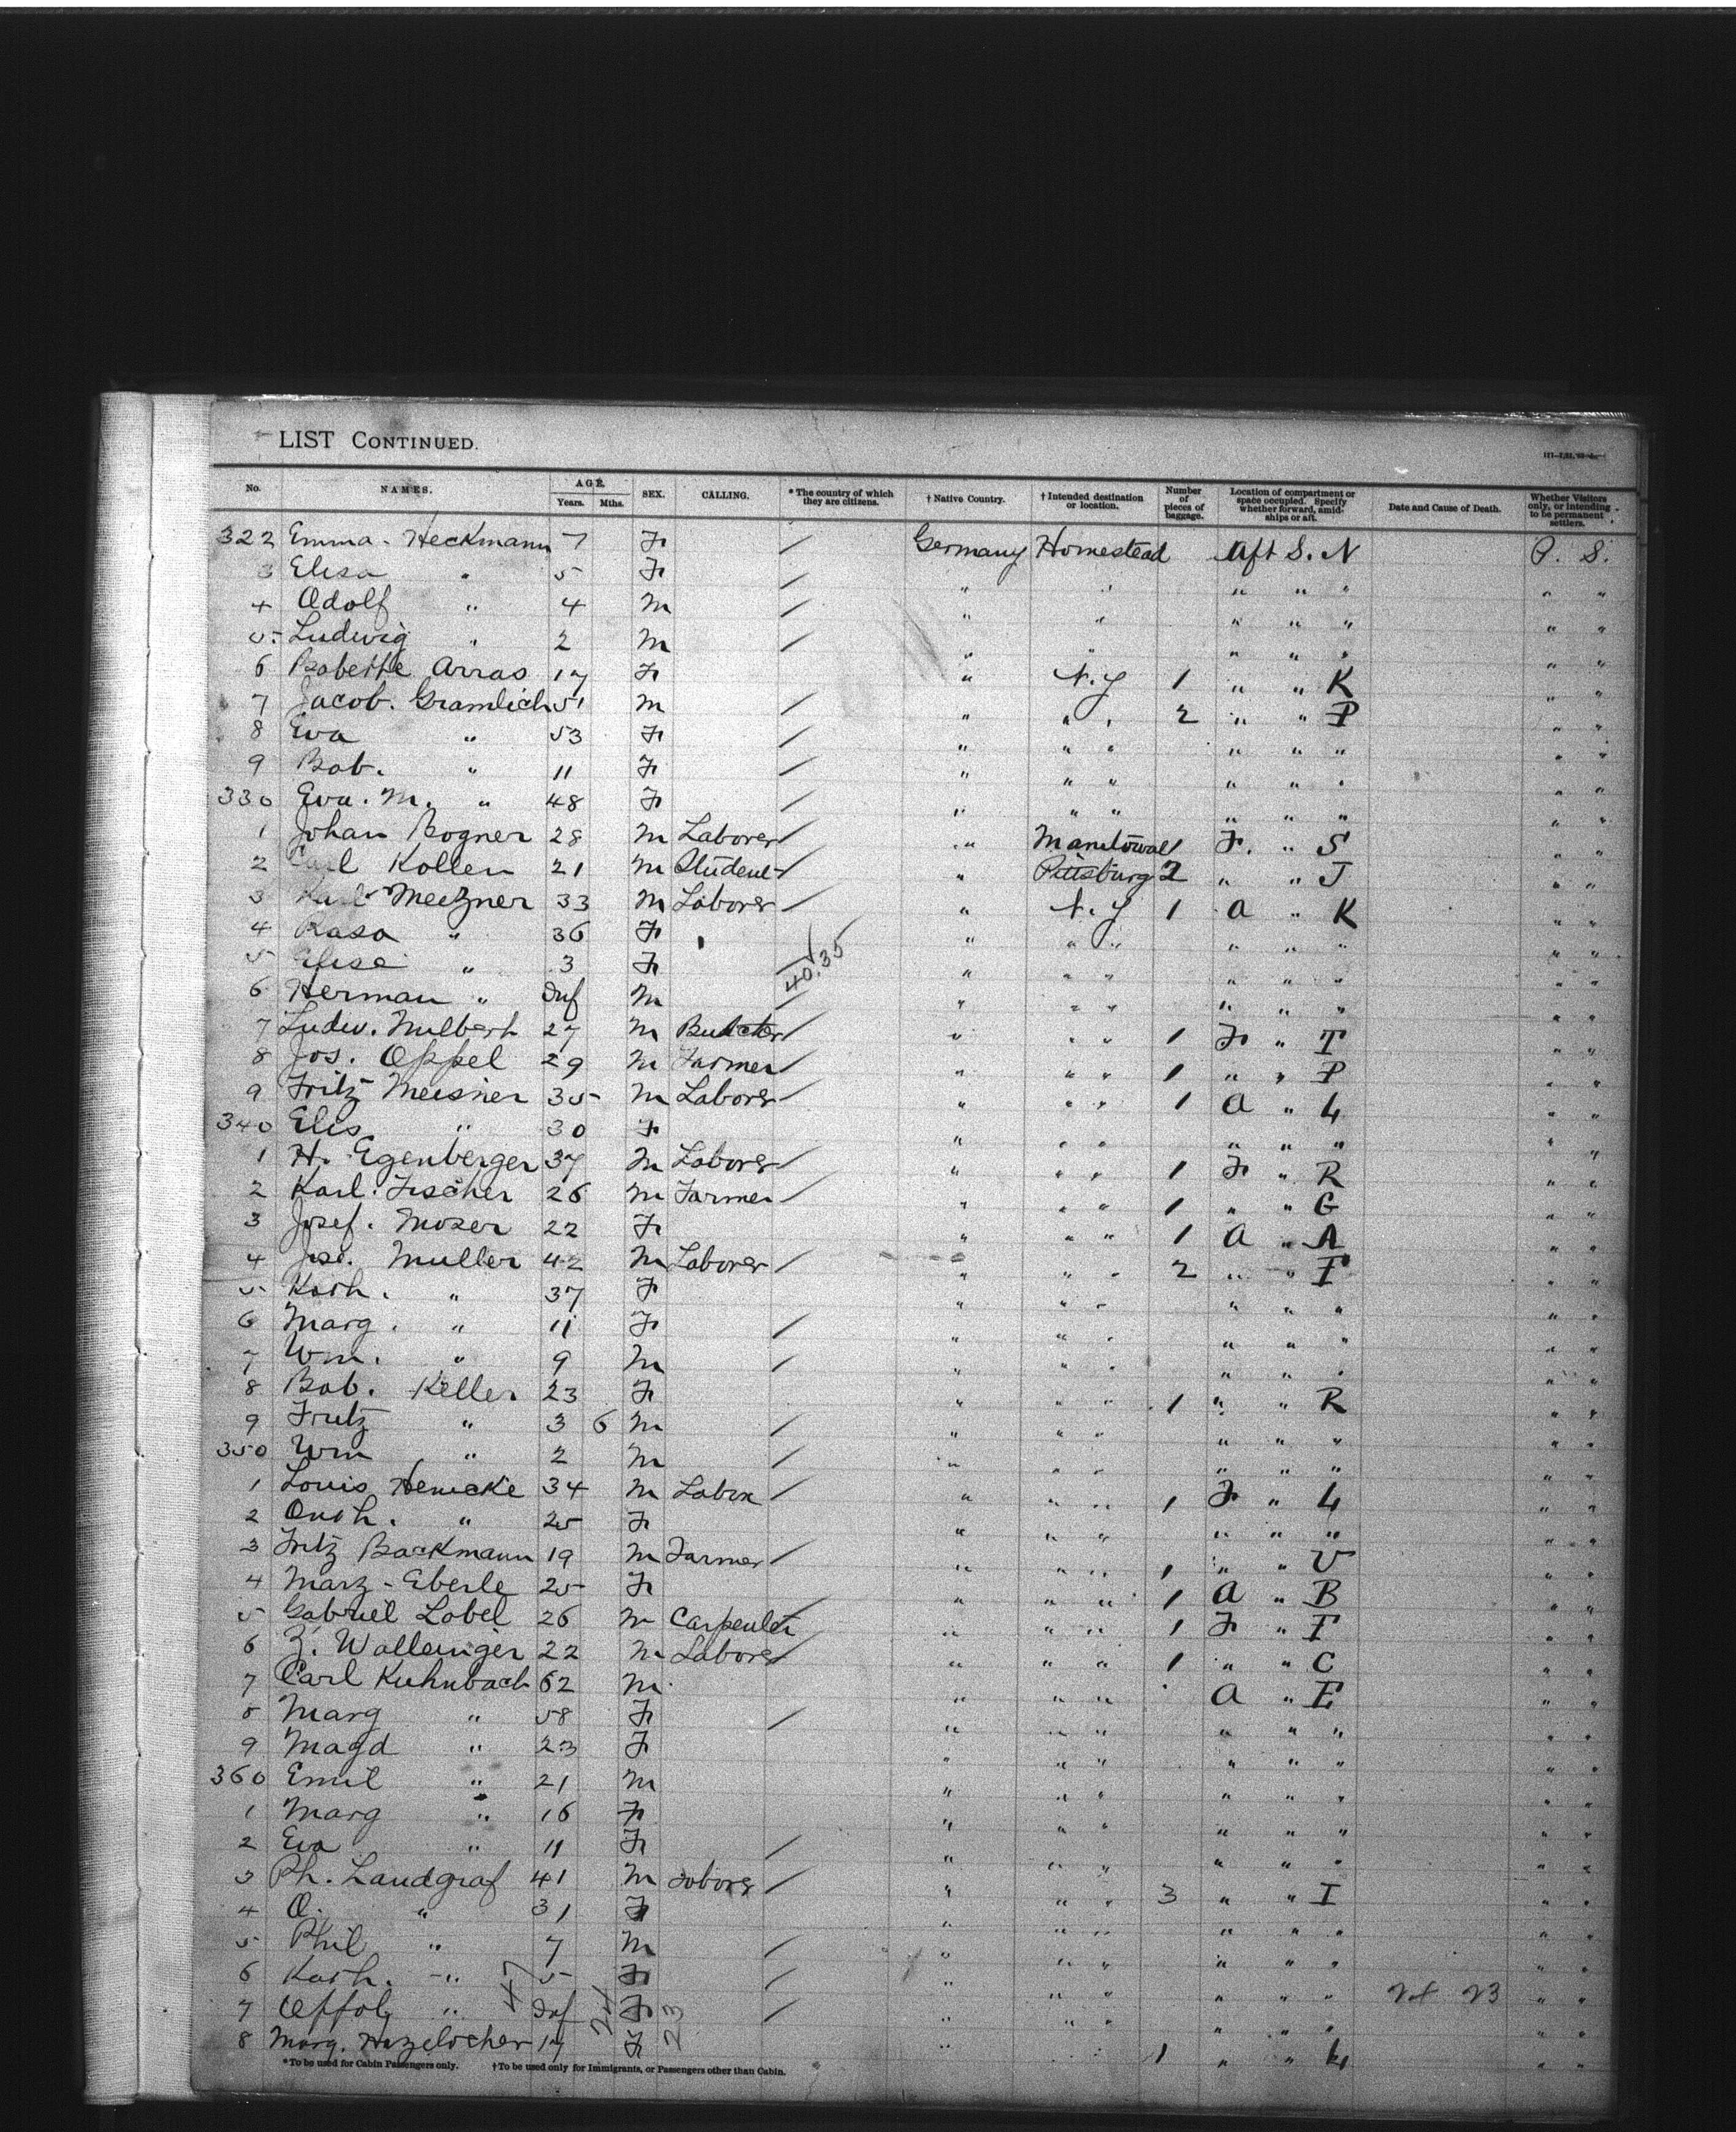 LIST CONTINUED.
No. NAMES. AGE. Years. Mths. SEX. CALLING. * The country of which they are citizens. † Native Country. † Intended destination or location. Number of pieces of baggage. Location of compartment or space occupied. Specify whether forward, amidships or aft. Date and Cause of Death. Whether Visitors only, or intending to be permanent settlers.
322 Emma Heckmann 7 F / Germany Homestead Aft S. N P. S.
3 Elisa " 5 F / " " " " " " "
4 Adolf " 4 M / " " " " " " "
5 Ludwig " 2 M / " " " " " " "
6 Babette Arras 17 F " N.Y 1 " " K " "
7 Jacob. Gramlich 51 M / " " " 2 " " P " "
8 Eva " 53 F / " " " " " " " "
9 Bab. " 11 F / " " " " " " " "
330 Eva. M. " 48 F / " " " " " " " "
1 Johan Bogner 28 M Laborer / " 1 F. " S " "
2 Carl Kollen 21 M Student / " Pittsburg 2 " " J " "
3 Karl Metzner 33 M Laborer / " N.Y 1 A " K " "
4 Rasa " 36 F " " " " " " " "
5 Elise " 3 F / 40.35 " " " " " " " "
6 Herman " Inf M / " " " " " " " "
7 Ludw. 27 M Butcher / " " " 1 F " T " "
8 Jos. Oppel 29 M Farmer / " " " 1 " " P " "
9 Fritz Meisner 35 M Laborer / " " " 1 A " L " "
340 Elis " 30 F " " " " " " " "
1 H. Egenberger 37 M Laborer / " " " 1 F " R " "
2 Karl. Fischer 26 M Farmer / " " " 1 " " G " "
3 Josef. Moser 22 F " " " 1 A " A " "
4 Jos. Muller 42 M Laborer / " " " 2 " " F " "
5 Kath. " 37 F " " " " " " " "
6 Marg. " 11 F / " " " " " " " "
7 Wm. " 9 M / " " " " " " " "
8 Bab. Keller 23 F " " " 1 " " R " "
9 Fritz " 3 6 M / " " " " " " " "
350 Wm " 2 M / " " " " " " " "
1 Louis Henicke 34 M Labor / " " " 1 F " L " "
2 " 25 F " " " " " " " "
3 Fritz Backmann 19 M Farmer / " " " 1 " " V " "
4 Marg - Eberle 25 F " " " 1 A " B " "
5 Gabriel Lobel 26 M Carpenter / " " " 1 F " F " "
6 Z. Wallenger 22 M Laborer / " " " 1 " " C " "
7 Carl Kuhnbach 62 M " " " A " E " "
8 Marg " 58 F / " " " " " " " "
9 Magd " 23 F " " " " " " " "
360 Emil " 21 M " " " " " " " "
1 Marg " 16 F " " " " " " " "
2 Eva " 11 F / " " " " " " " "
3 Ph. Landgraf 41 M Laborer / " " " 3 " " I " "
4 O. " 31 F " " " " " " " "
5 Phil " 7 M / " " " " " " " "
6 Kath. " 5 F / " " " " " " " "
7 " Inf F / " " " " " " 24 23 " "
8 Marg. Hazelocher 17 F " " " 1 " " L " "
47 24 23
*To be used for Cabin Passengers only. †To be used only for Immigrants, or Passengers other than Cabin.